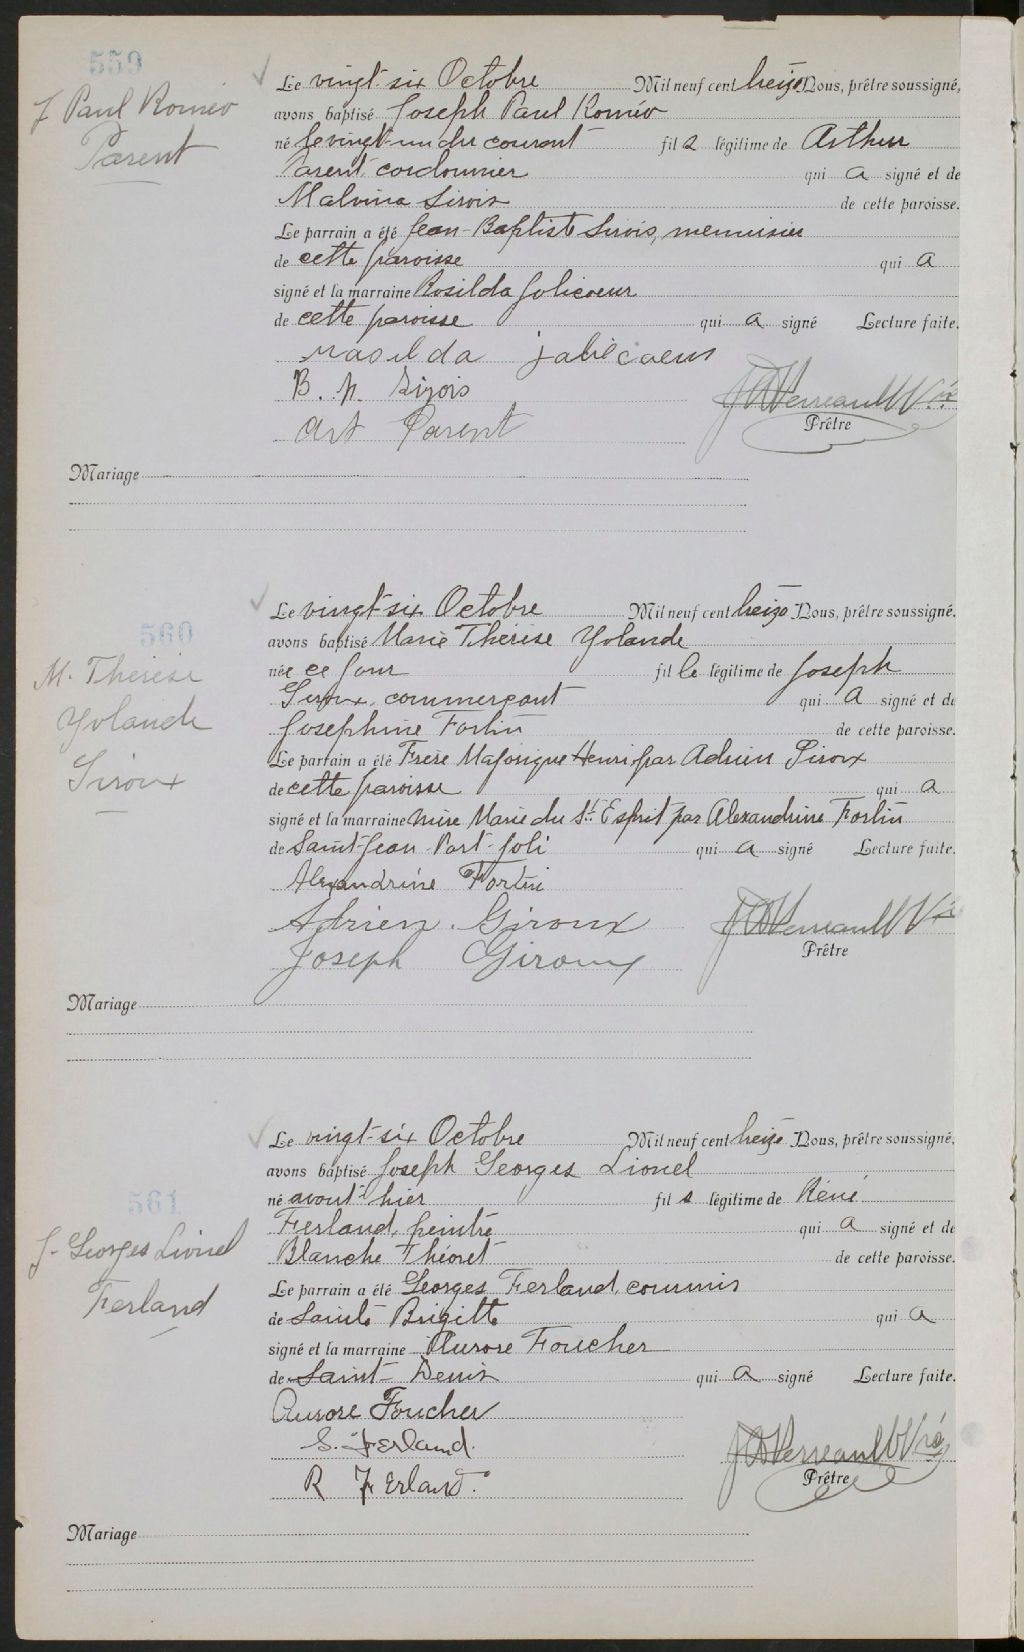 559
J Paul Roméo
Parent
Le vingt-six Octobre Mil neuf cent treize Nous, prêtre soussigné,
avons baptisé Joseph Paul Roméo
né le vingt-un du courant fil s légitime de Arthur
Parent cordonnier qui a signé et de
Malvina Sirois de cette paroisse.
Le parrain a été Jean-Baptiste Sirois, menuisier
de cette paroisse qui a
signé et la marraine Rosilda Jolicoeur
de cette paroisse qui a signé Lecture faite.
jolicoeur
Sirois
Art Parent
J A Verreault Ptre
Prêtre
Mariage
560
M. Thérèse
Yolande
Giroux
Le vingt-six Octobre Mil neuf cent treize Nous, prêtre soussigné.
avons baptisé Marie Thérèse Yolande
née ce jour fil le légitime de Joseph
Giroux, commerçant qui a signé et de
Josephine Fortin de cette paroisse.
Le parrain a été Frère Majorique Henri par Adrien Giroux
de cette paroisse qui a
signé et la marraine mère Marie du St. Esprit par Alexandrine Fortin
de Saint-Jean Port-Joli qui a signé Lecture faite.
Alexandrine Fortin
Adrien Giroux
Joseph Giroux
J A Verreault Ptre
Prêtre
Mariage
561
J. Georges Lionel
Ferland
Le vingt-six Octobre Mil neuf cent treize Nous, prêtre soussigné,
avons baptisé Joseph Georges Lionel
né avant hier fil s légitime de Réné
Ferland, peintre qui a signé et de
Blanche Théoret de cette paroisse.
Le parrain a été Georges Ferland, commis
de Sainte Brigitte qui a
signé et la marraine Aurore Foucher
de Saint-Denis qui a signé Lecture faite.
Aurore Foucher
G. Ferland.
R Ferland.
J A Verreault Ptre
Prêtre
Mariage